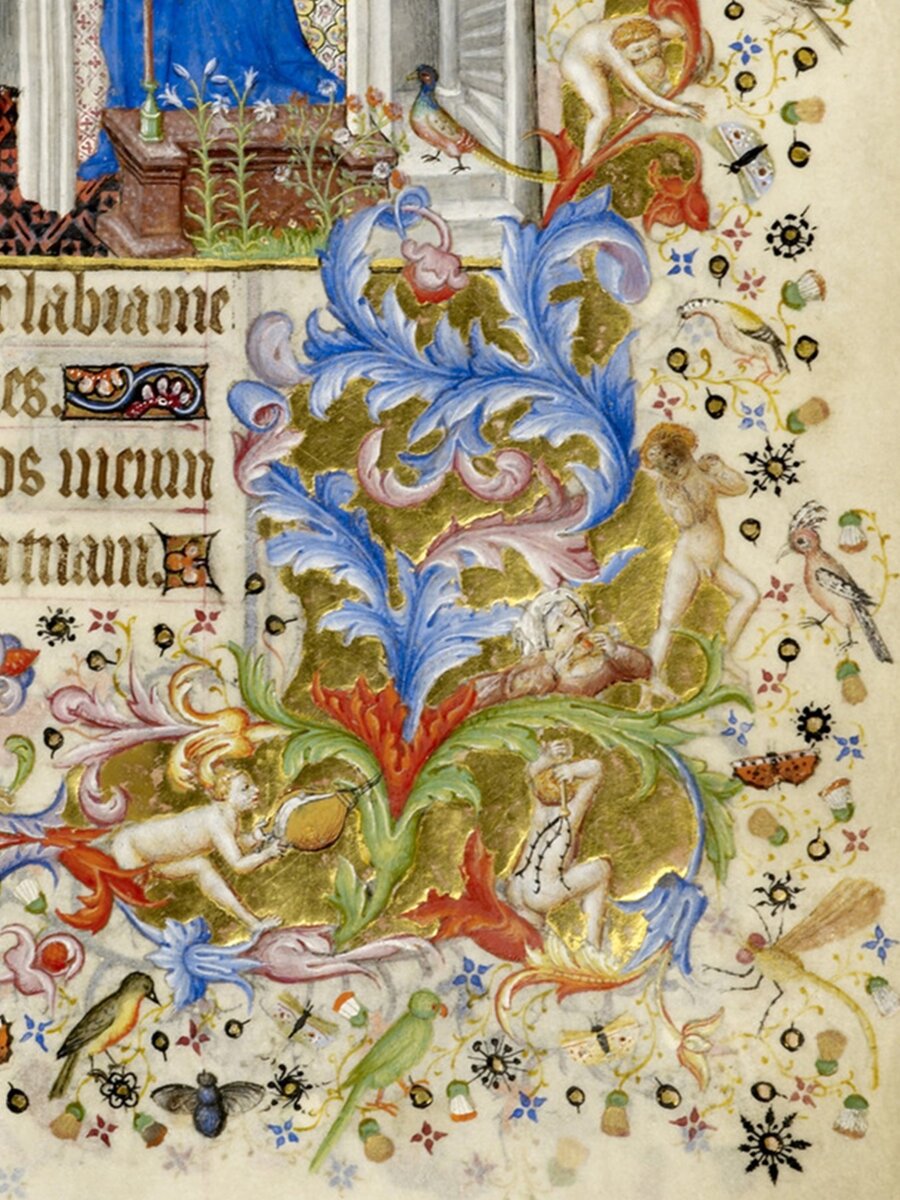 labia me
es.
os meum
tuam.